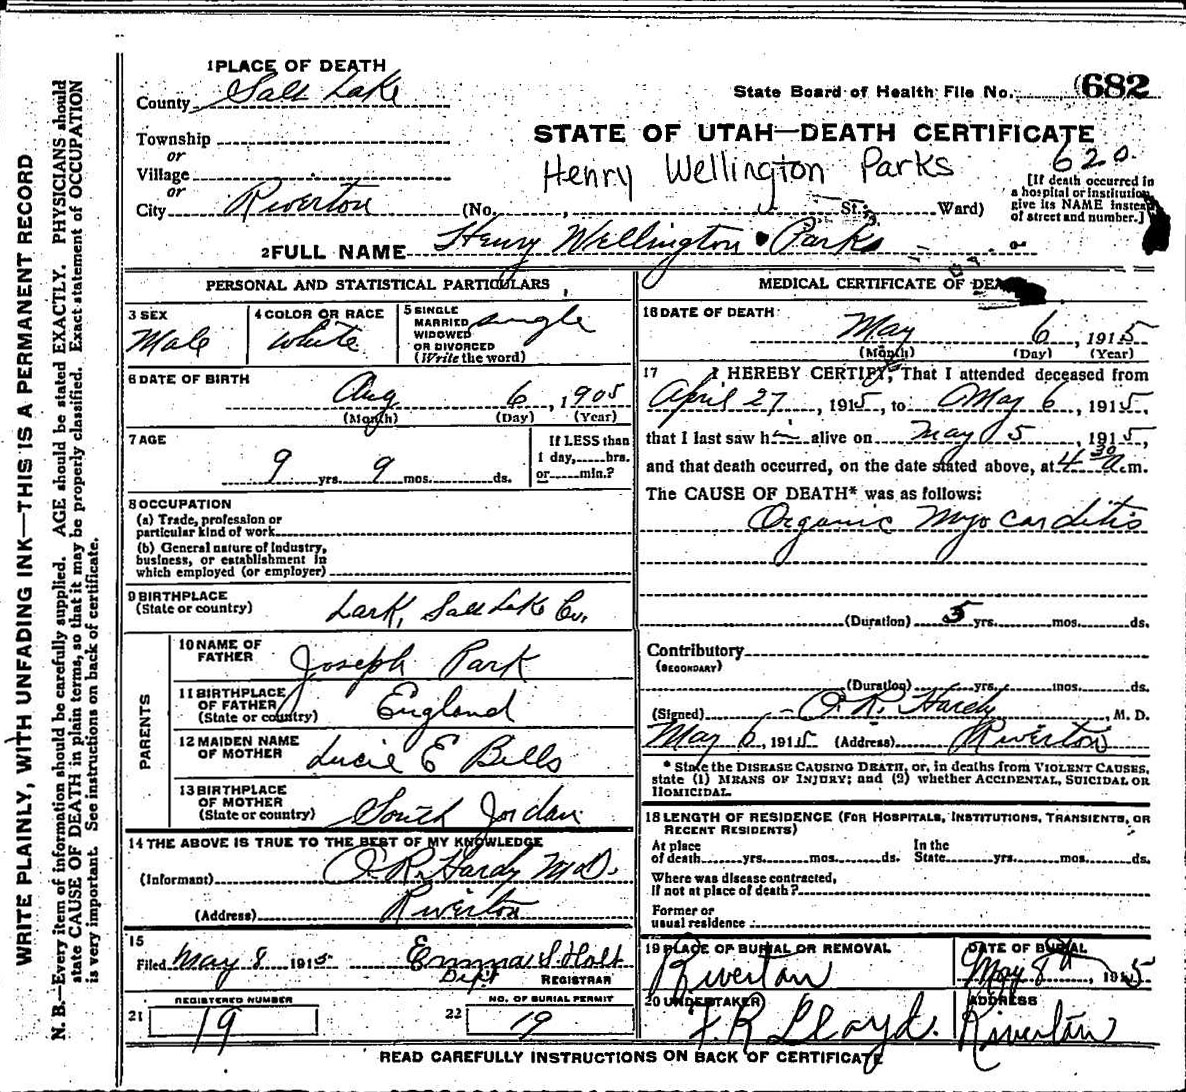 WRITE PLAINLY, WITH UNFADING INK—THIS IS A PERMANENT RECORD
N. B.—Every item of information should be carefully supplied. AGE should be stated EXACTLY. PHYSICIANS should
state CAUSE OF DEATH in plain terms, so that it may be properly classified. Exact statement of OCCUPATION
is very important. See instructions on back of certificate.
1 PLACE OF DEATH
County Salt Lake
State Board of Health File No. 682
Township
or
Village
or
City Riverton
STATE OF UTAH—DEATH CERTIFICATE
620
Henry Wellington Parks
[If death occurred in
a hospital or institution,
give its NAME instead
of street and number.]
(No. , St., Ward)
2 FULL NAME Henry Wellington Parks
PERSONAL AND STATISTICAL PARTICULARS
3 SEX
Male
4 COLOR OR RACE
White
5 SINGLE
MARRIED
WIDOWED
OR DIVORCED
(Write the word)
single
6 DATE OF BIRTH
Aug 6, 1905
(Month) (Day) (Year)
7 AGE
9 yrs. 9 mos. ds.
If LESS than
1 day, hrs.
or min.?
8 OCCUPATION
(a) Trade, profession or
particular kind of work
(b) General nature of Industry,
business, or establishment in
which employed (or employer)
9 BIRTHPLACE
(State or country)
Lark, Salt Lake Co.
PARENTS
10 NAME OF
FATHER
Joseph Park
11 BIRTHPLACE
OF FATHER
(State or country)
England
12 MAIDEN NAME
OF MOTHER
Lucie E Bills
13 BIRTHPLACE
OF MOTHER
(State or country)
South Jordan
14 THE ABOVE IS TRUE TO THE BEST OF MY KNOWLEDGE
(Informant) O. R. Hardy M.D.
(Address) Riverton
15
Filed May 8 1915 Emma S. Holt
Dept REGISTRAR
REGISTERED NUMBER
21 19
NO. OF BURIAL PERMIT
22 19
MEDICAL CERTIFICATE OF DEATH
16 DATE OF DEATH
May 6, 1915
(Month) (Day) (Year)
17 I HEREBY CERTIFY, That I attended deceased from
April 27, 1915, to May 6, 1915,
that I last saw him alive on May 5, 1915,
and that death occurred, on the date stated above, at 4 30 A.m.
The CAUSE OF DEATH* was as follows:
Organic Myocarditis
(Duration) 5 yrs. mos. ds.
Contributory
(SECONDARY)
(Duration) yrs. mos. ds.
(Signed) O. R. Hardy, M. D.
May 6, 1915 (Address) Riverton
* State the DISEASE CAUSING DEATH, or, in deaths from VIOLENT CAUSES,
state (1) MEANS OF INJURY; and (2) whether ACCIDENTAL, SUICIDAL OR
HOMICIDAL.
18 LENGTH OF RESIDENCE (FOR HOSPITALS, INSTITUTIONS, TRANSIENTS, OR
RECENT RESIDENTS)
At place
of death yrs. mos. ds.
In the
State yrs. mos. ds.
Where was disease contracted,
If not at place of death?
Former or
usual residence
19 PLACE OF BURIAL OR REMOVAL
Riverton
DATE OF BURIAL
May 8th, 1915
20 UNDERTAKER
F. R. Lloyd.
ADDRESS
Riverton
READ CAREFULLY INSTRUCTIONS ON BACK OF CERTIFICATE